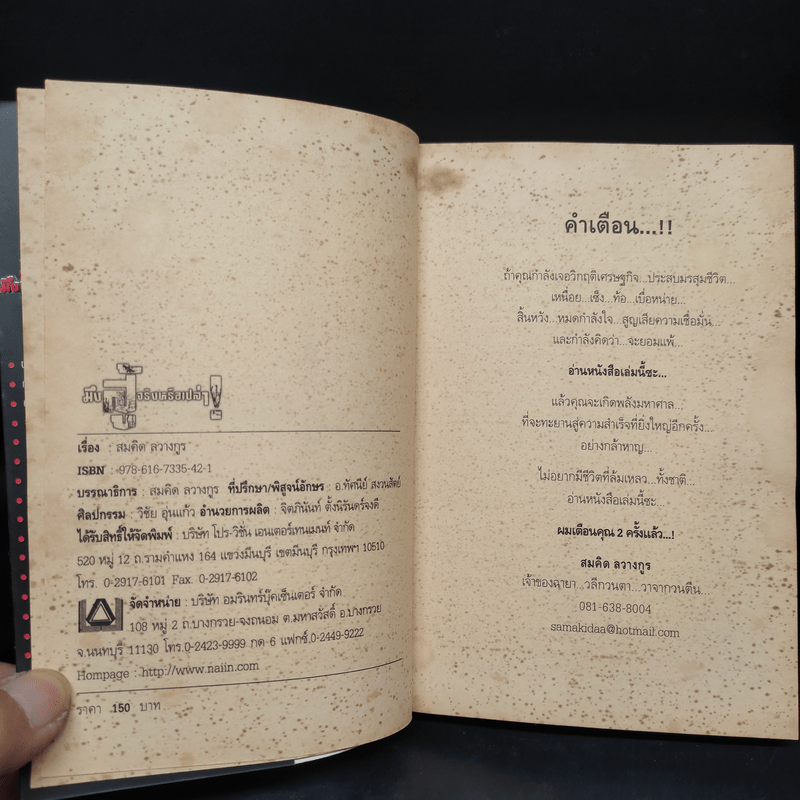 มึง
จริงหรือเปล่า!
เรื่อง : สมคิด ลวางกูร
ISBN : 978-616-7335-42-1
บรรณาธิการ : สมคิด ลวางกูร ที่ปรึกษา/พิสูจน์อักษร : อ.ทัศนีย์ สงวนสัตย์
ศิลปกรรม : วิชัย อุ่นแก้ว อำนวยการผลิต : จิตภินันท์ ตั้งนิรันดร์จงดี
ได้รับสิทธิ์ให้จัดพิมพ์ : บริษัท โปร-วิชั่น เอนเตอร์เทนเมนท์ จำกัด
520 หมู่ 12 ถ.รามคำแหง 164 แขวงมีนบุรี เขตมีนบุรี กรุงเทพฯ 10510
โทร. 0-2917-6101 Fax. 0-2917-6102
จัดจำหน่าย : บริษัท อมรินทร์บุ๊คเซ็นเตอร์ จำกัด
108 หมู่ 2 ถ.บางกรวย-จงถนอม ต.มหาสวัสดิ์ อ.บางกรวย
จ.นนทบุรี 11130 โทร.0-2423-9999 กด 6 แฟกซ์.0-2449-9222
Hompage : http://www.naiin.com
ราคา 150 บาท
คำเตือน...!!
ถ้าคุณกำลังเจอวิกฤติเศรษฐกิจ...ประสบมรสุมชีวิต...
เหนื่อย...เซ็ง...ท้อ...เบื่อหน่าย...
สิ้นหวัง...หมดกำลังใจ...สูญเสียความเชื่อมั่น...
และกำลังคิดว่า...จะยอมแพ้...
อ่านหนังสือเล่มนี้ซะ...
แล้วคุณจะเกิดพลังมหาศาล...
ที่จะทะยานสู่ความสำเร็จที่ยิ่งใหญ่อีกครั้ง...
อย่างกล้าหาญ...
ไม่อยากมีชีวิตที่ล้มเหลว...ทั้งชาติ...
อ่านหนังสือเล่มนี้ซะ...
ผมเตือนคุณ 2 ครั้งแล้ว...!
สมคิด ลวางกูร
เจ้าของฉายา...วลีกวนตา...วาจากวนตีน...
081-638-8004
samakidaa@hotmail.com